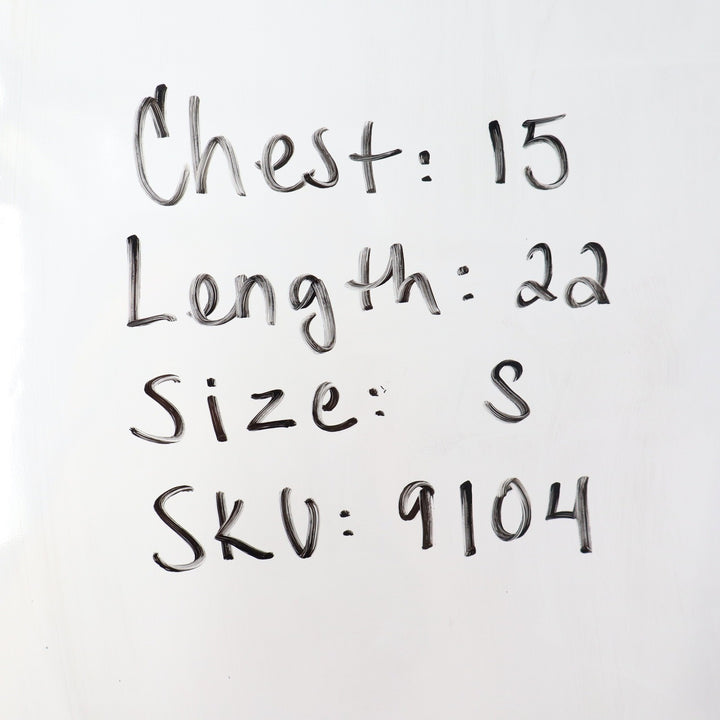 Chest: 15
Length: 22
Size: S
SKU: 9104